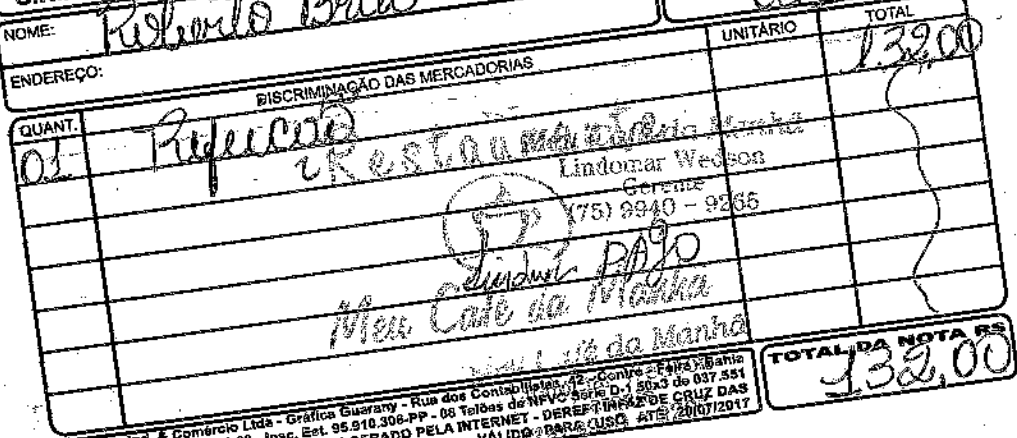 NOME: Roberto Brito
ENDEREÇO:
QUANT. DISCRIMINAÇÃO DAS MERCADORIAS UNITÁRIO TOTAL
01 Refeição 132,00
Restaurante
Lindomar Wedson
Gerente
(75) 9940 - 9265
PAgo
Meu Café da Manhã
Café da Manhã
TOTAL DA NOTA R$
132,00
& Comércio Ltda - Gráfica Guarany - Rua dos Contabilistas, 42 - Centro - Feira - Bahia
Insc. Est. 95.910.306-PP - 08 Talões de NFVC Série D-1 50x3 de 037.551
GERADO PELA INTERNET - DEREF INFAZ DE CRUZ DAS
VÁLIDO PARA USO ATÉ 20/07/2017